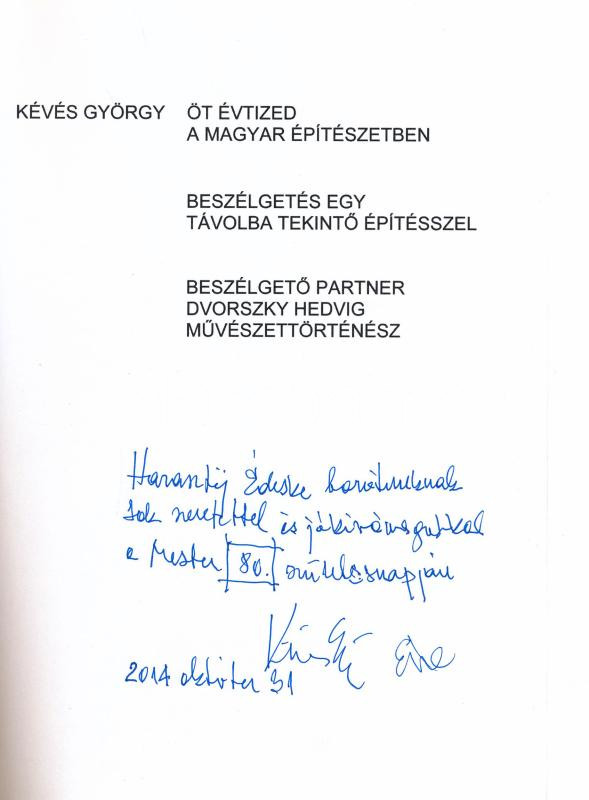 KÉVÉS GYÖRGY ÖT ÉVTIZED
A MAGYAR ÉPÍTÉSZETBEN
BESZÉLGETÉS EGY
TÁVOLBA TEKINTŐ ÉPÍTÉSSZEL
BESZÉLGETŐ PARTNER
DVORSZKY HEDVIG
MŰVÉSZETTÖRTÉNÉSZ
Édeske barátunknak
sok szeretettel és jókívánságokkal
a Mester 80. születésnapján
2014 október 31